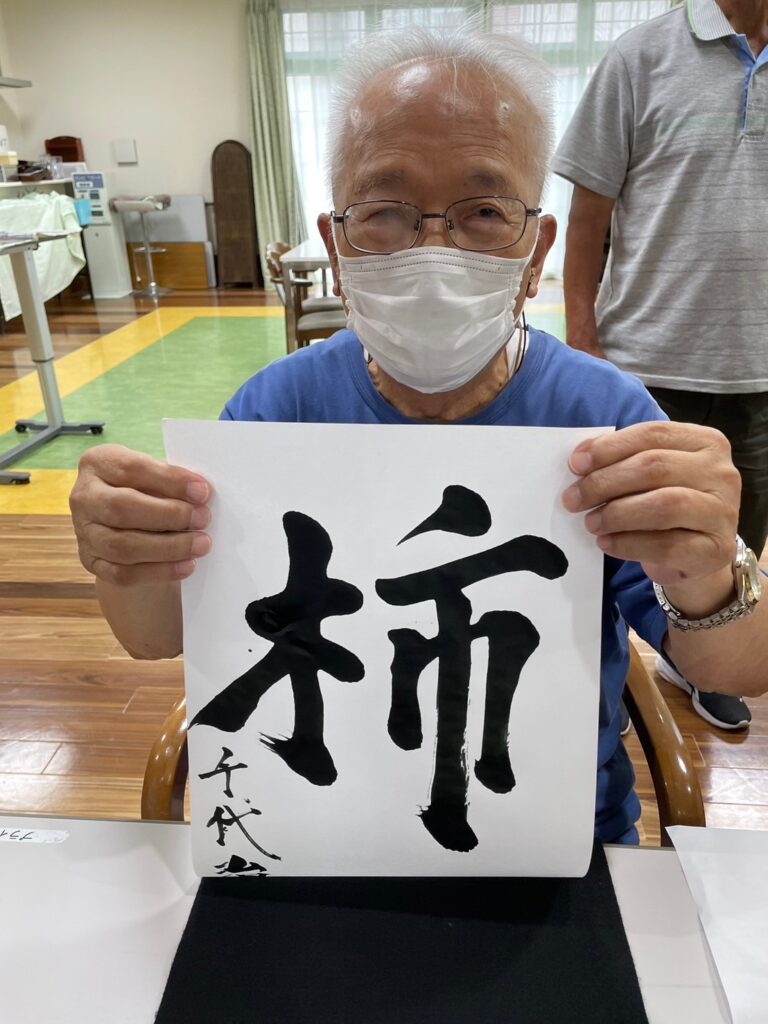 柿
千代